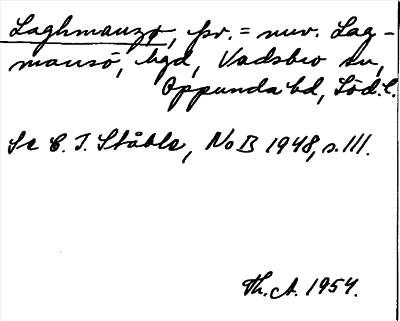 Laghmauzø, fsv. = nuv. Lag-
mansö, hgd, Vadsbro sn,
Oppunda hd, Södl.
Se C. I. Ståhle, NoB 1948, s. 111.
Th. A. 1954.